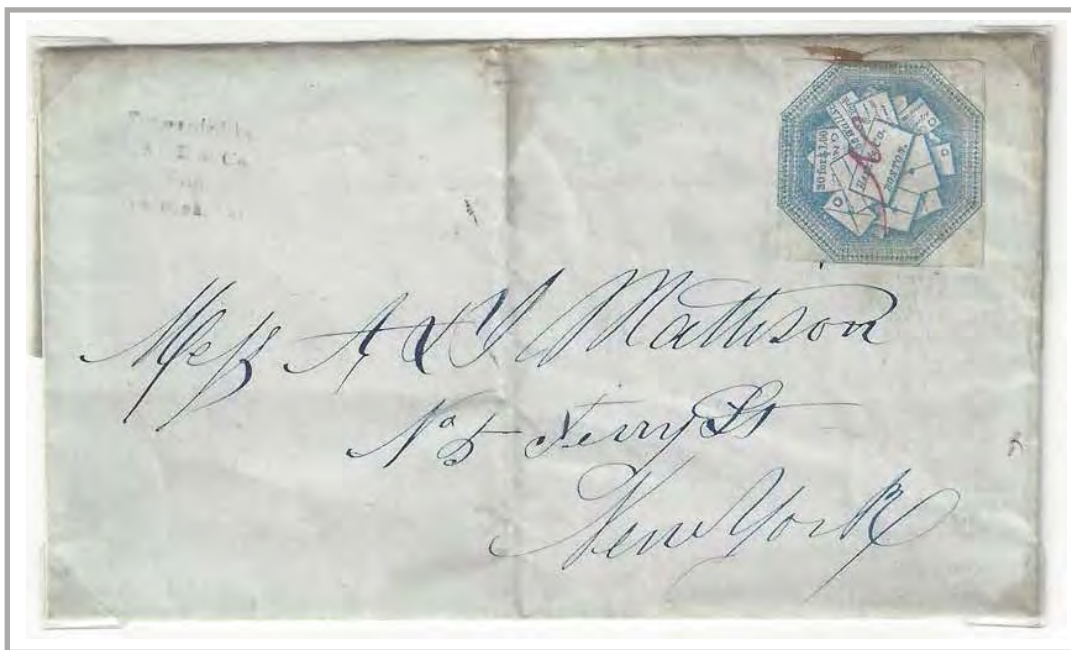 Forwarded by
& Co
20 for $1.00
Hale & Co.
BOSTON.
Mess A & J Mattison
No 5 Ferry St
New York